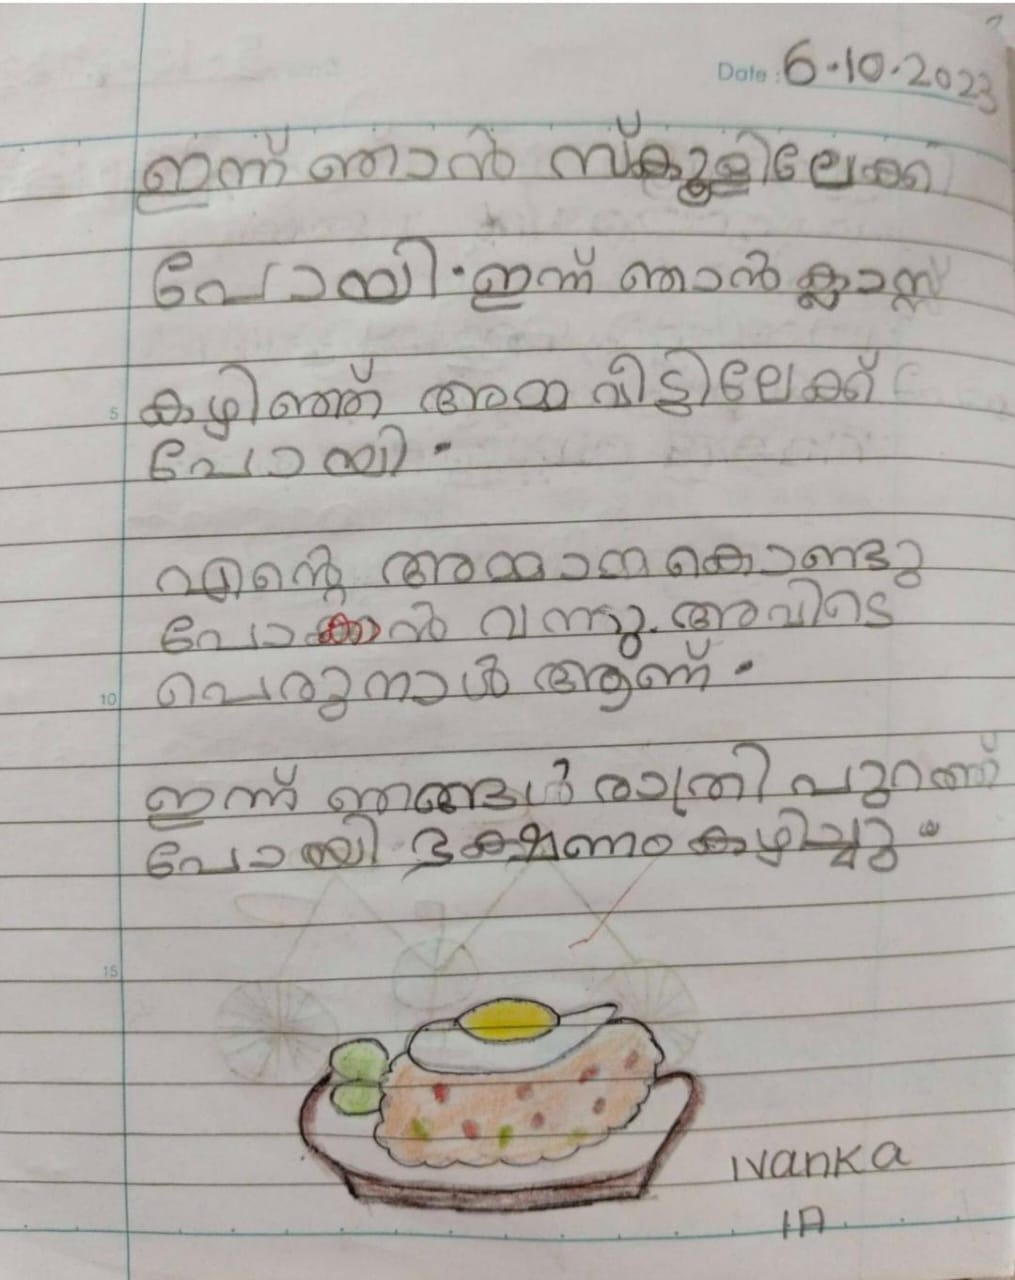 Date : 6.10.2023
ഇന്ന് ഞാൻ സ്കൂളിലേക്ക്
പോയി. ഇന്ന് ഞാൻ ക്ലാസ്സ്
5 കഴിഞ്ഞ് അമ്മ വീട്ടിലേക്ക്
പോയി.
എന്റെ അമ്മാമ്മ കൊണ്ടു
പോകാൻ വന്നു. അവിടെ
10 പെരുന്നാൾ ആണ്.
ഇന്ന് ഞങ്ങൾ രാത്രി പുറത്ത്
പോയി ഭക്ഷണം കഴിച്ചു.
15
ivanka
1A